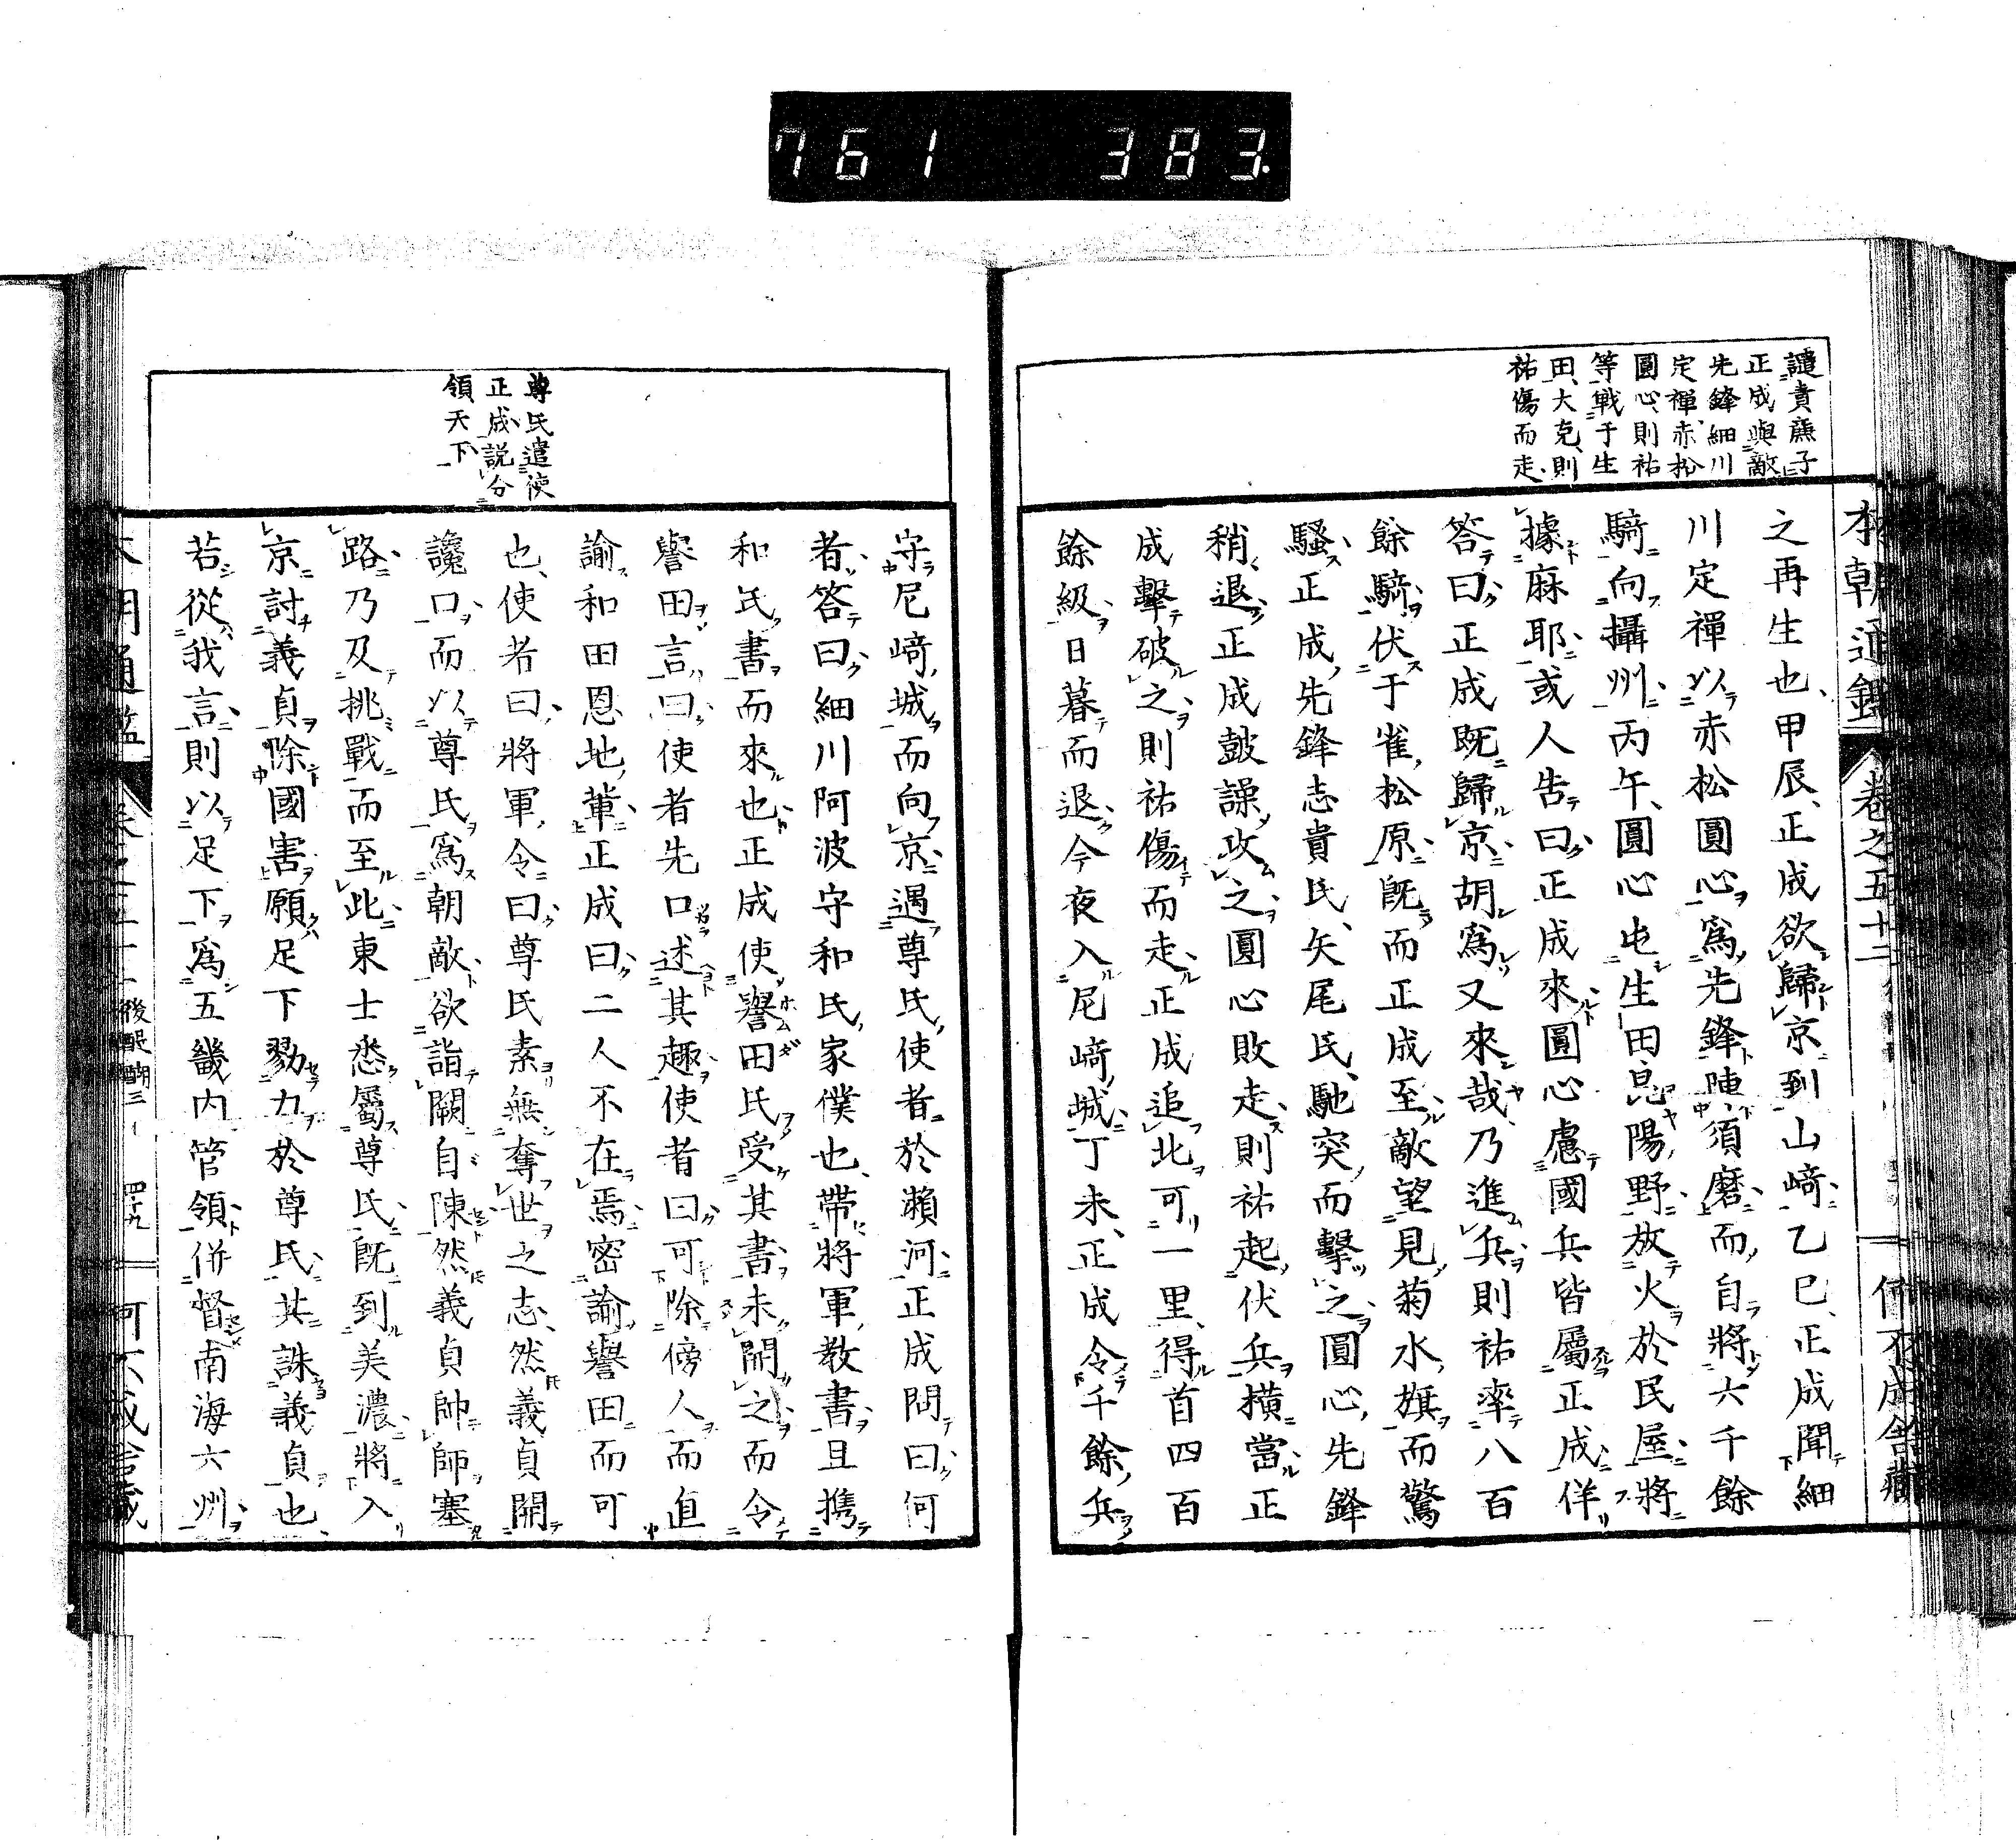 761 383.
譴責庶子
正成與敵
先鋒細川
定禪赤松
圓心則祐
等戰于生
田大克則
祐傷而走
本朝通鑑 卷之五十二
之再生也甲辰正成欲歸京到山﨑乙巳正成聞細
川定禪以赤松圓心爲先鋒陣須磨而自將六千餘
騎向攝州丙午圓心屯生田昆陽野放火於民屋將
據麻耶或人告曰正成來圓心慮國兵皆屬正成佯
答曰正成既歸京胡爲又來哉乃進兵則祐率八百
餘騎伏于雀松原既而正成至敵望見菊水旗而驚
騷正成先鋒志貴氏矢尾氏馳突而擊之圓心先鋒
稍退正成鼓譟攻之圓心敗走則祐起伏兵橫當正
成擊破之則祐傷而走正成追北可一里得首四百
餘級日暮而退今夜入尼﨑城丁未正成令千餘兵
尊氏遣使
正成説分
領天下
守尼﨑城而向京遇尊氏使者於瀨河正成問曰何
者答曰細川阿波守和氏家僕也帶將軍教書且携
和氏書而來也正成使譽田氏受其書未開之而令
譽田言曰使者先口述其趣使者曰可除傍人而直
諭和田恩地輩正成曰二人不在焉密諭譽田而可
也使者曰將軍令曰尊氏素無奪世之志然義貞開
讒口而以尊氏爲朝敵欲詣闕自陳然義貞帥師塞
路乃及挑戰而至此東士悉屬尊氏既到美濃將入
京討義貞除國害願足下勠力於尊氏共誅義貞也
若從我言則以足下爲五畿内管領併督南海六州
後醍醐三 四十九